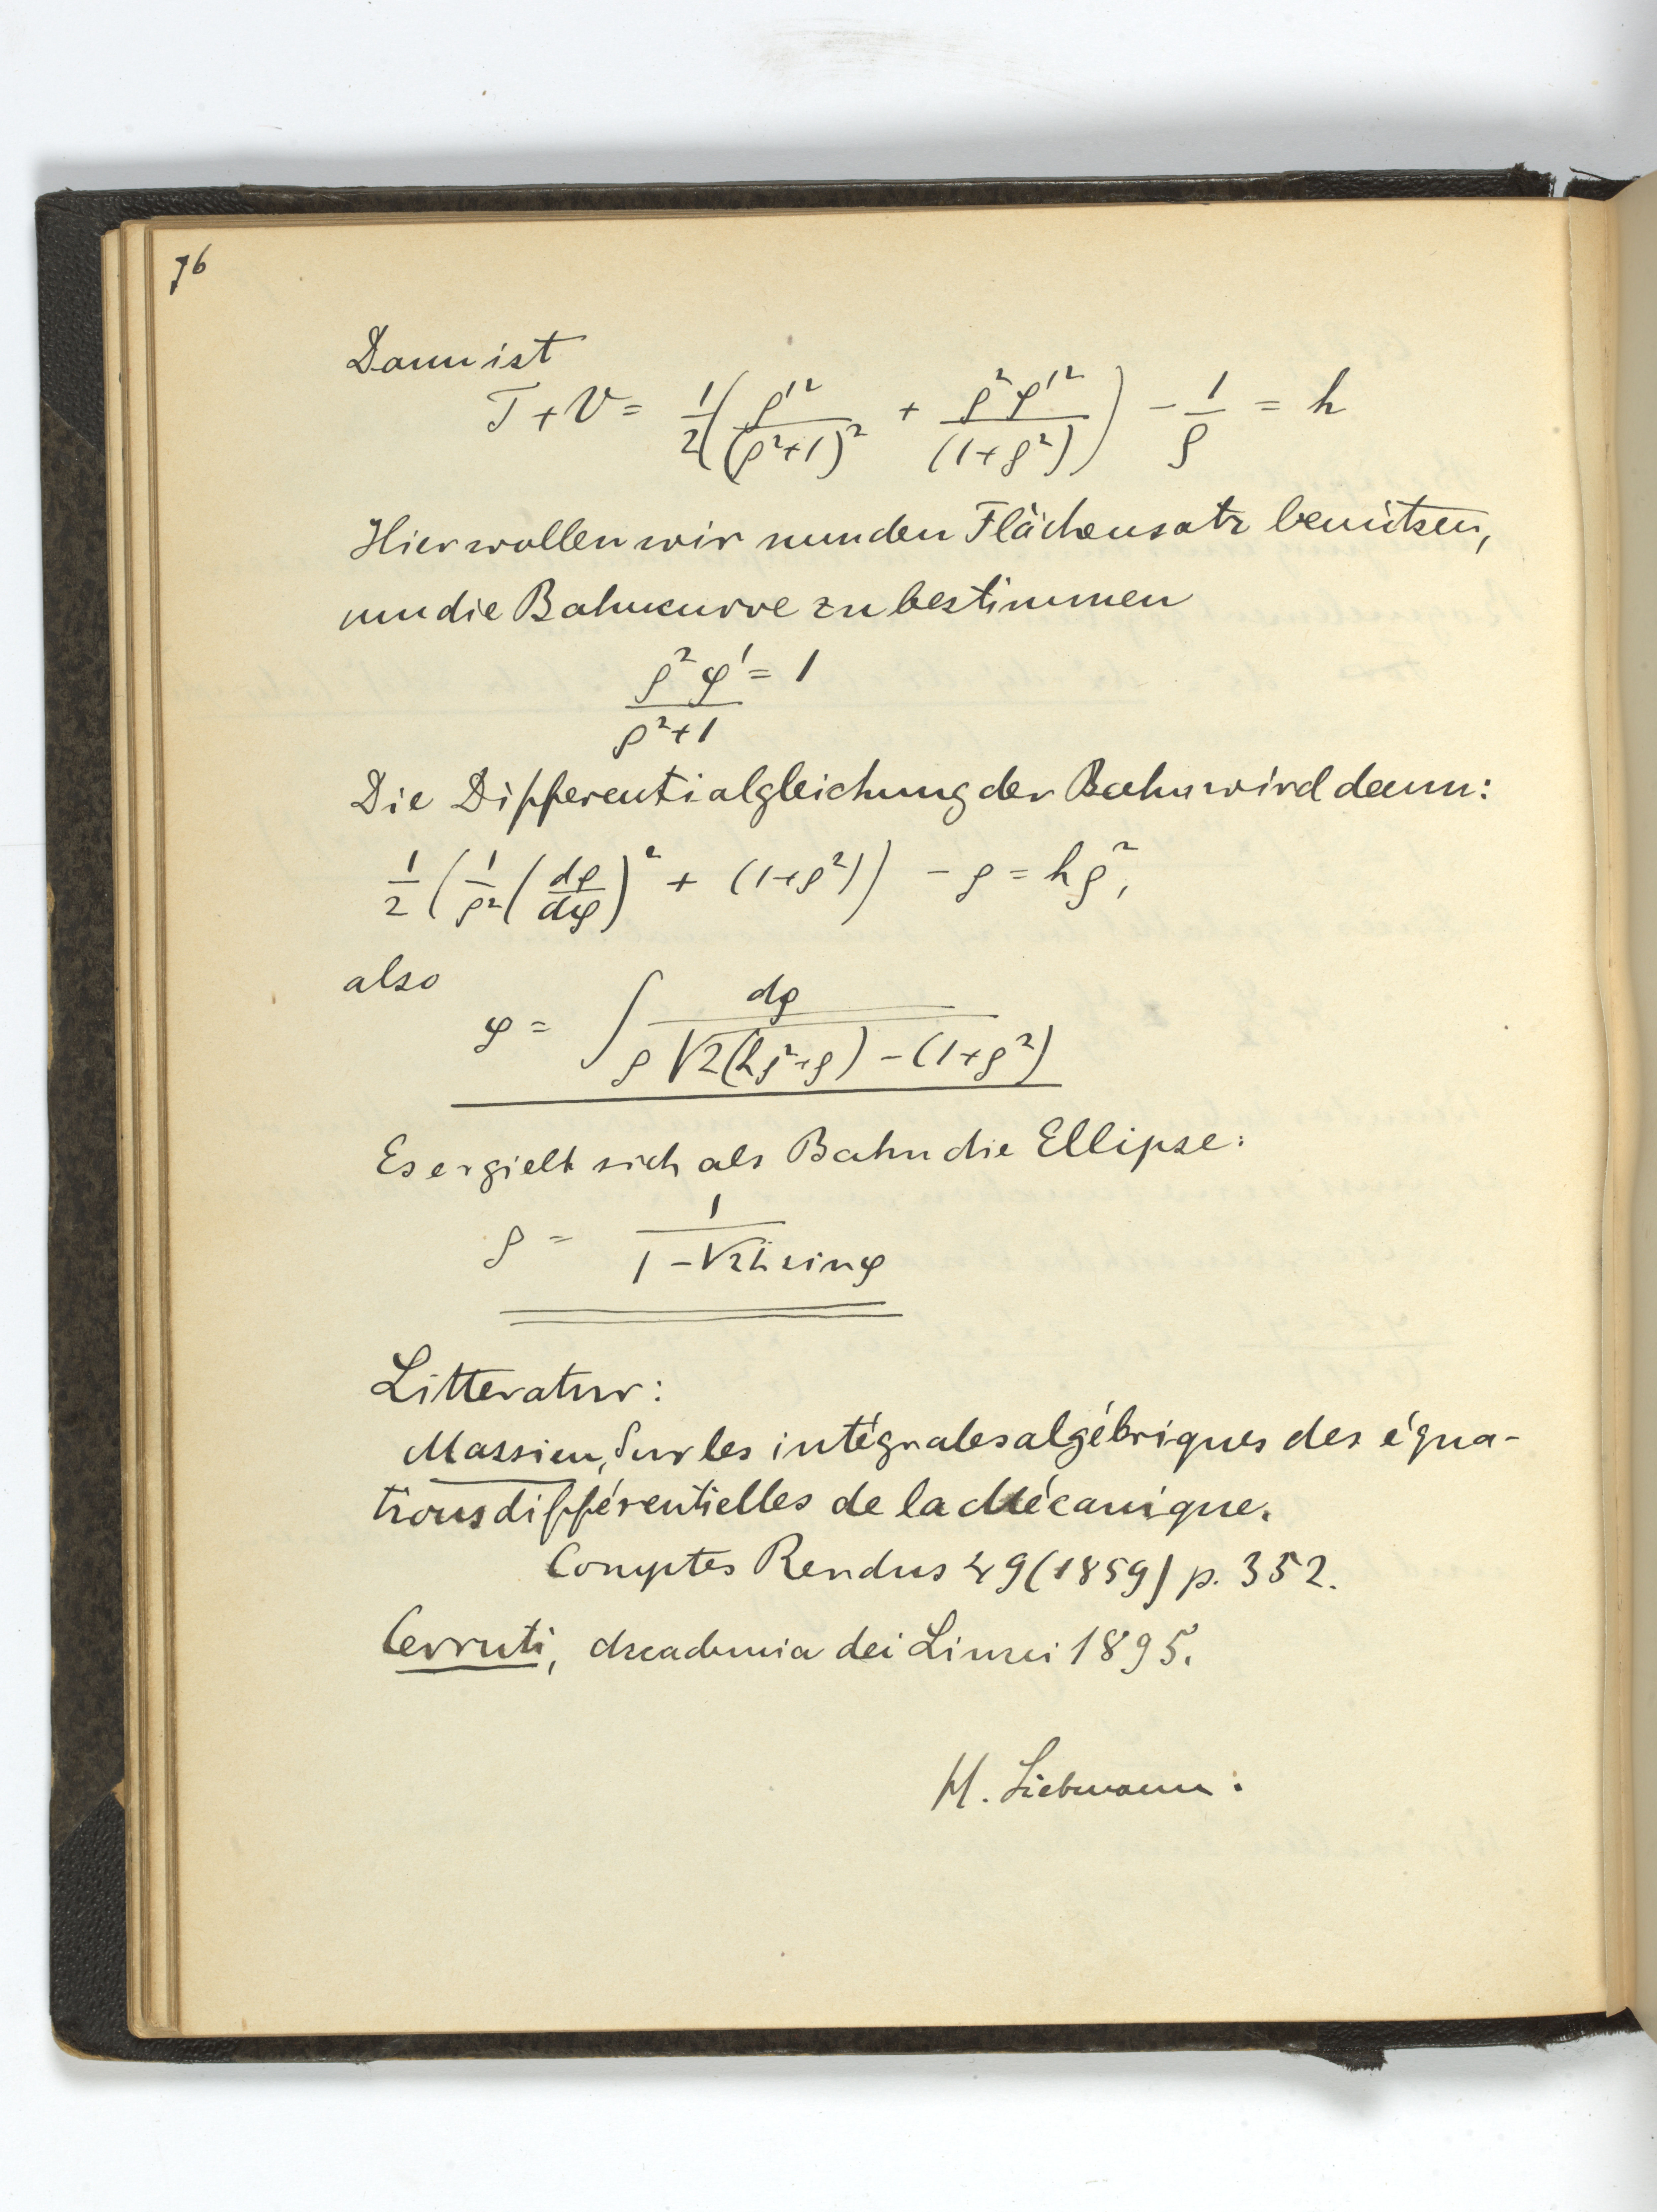 76
Dann ist
T + V = 1/2 ( ρ'²/(ρ²+1)² + ρ²φ'²/(1+ρ²) ) − 1/ρ = h
Hier wollen wir nun den Flächensatz benützen,
um die Bahnkurve zu bestimmen
ρ²φ'/(ρ²+1) = 1
Die Differentialgleichung der Bahn wird dann:
1/2 ( 1/ρ² (dρ/dφ)² + (1+ρ²) ) − ρ = hρ²,
also
φ = ∫ dρ / ρ√2(hρ²+ρ) − (1+ρ²)
Es ergiebt sich als Bahn die Ellipse:
ρ = 1 / (1 − √2h sin φ)
Litteratur:
Massieu, Sur les intégrales algébriques des équa-
tions différentielles de la Mécanique.
Comptes Rendus 49 (1859) p. 352.
Cerruti, Accademia dei Lincei 1895.
H. Liebmann.